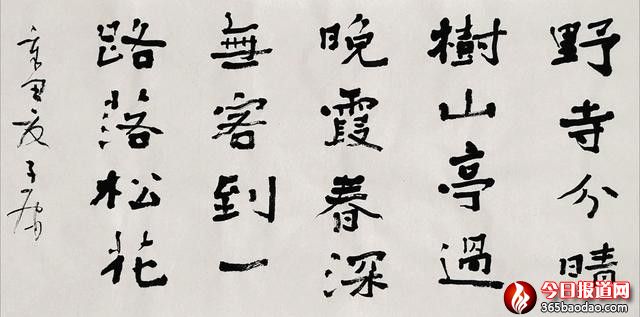 野寺分晴
樹山亭過
晚霞春深
無客到一
路落松花
今日报道网
365baodao.com